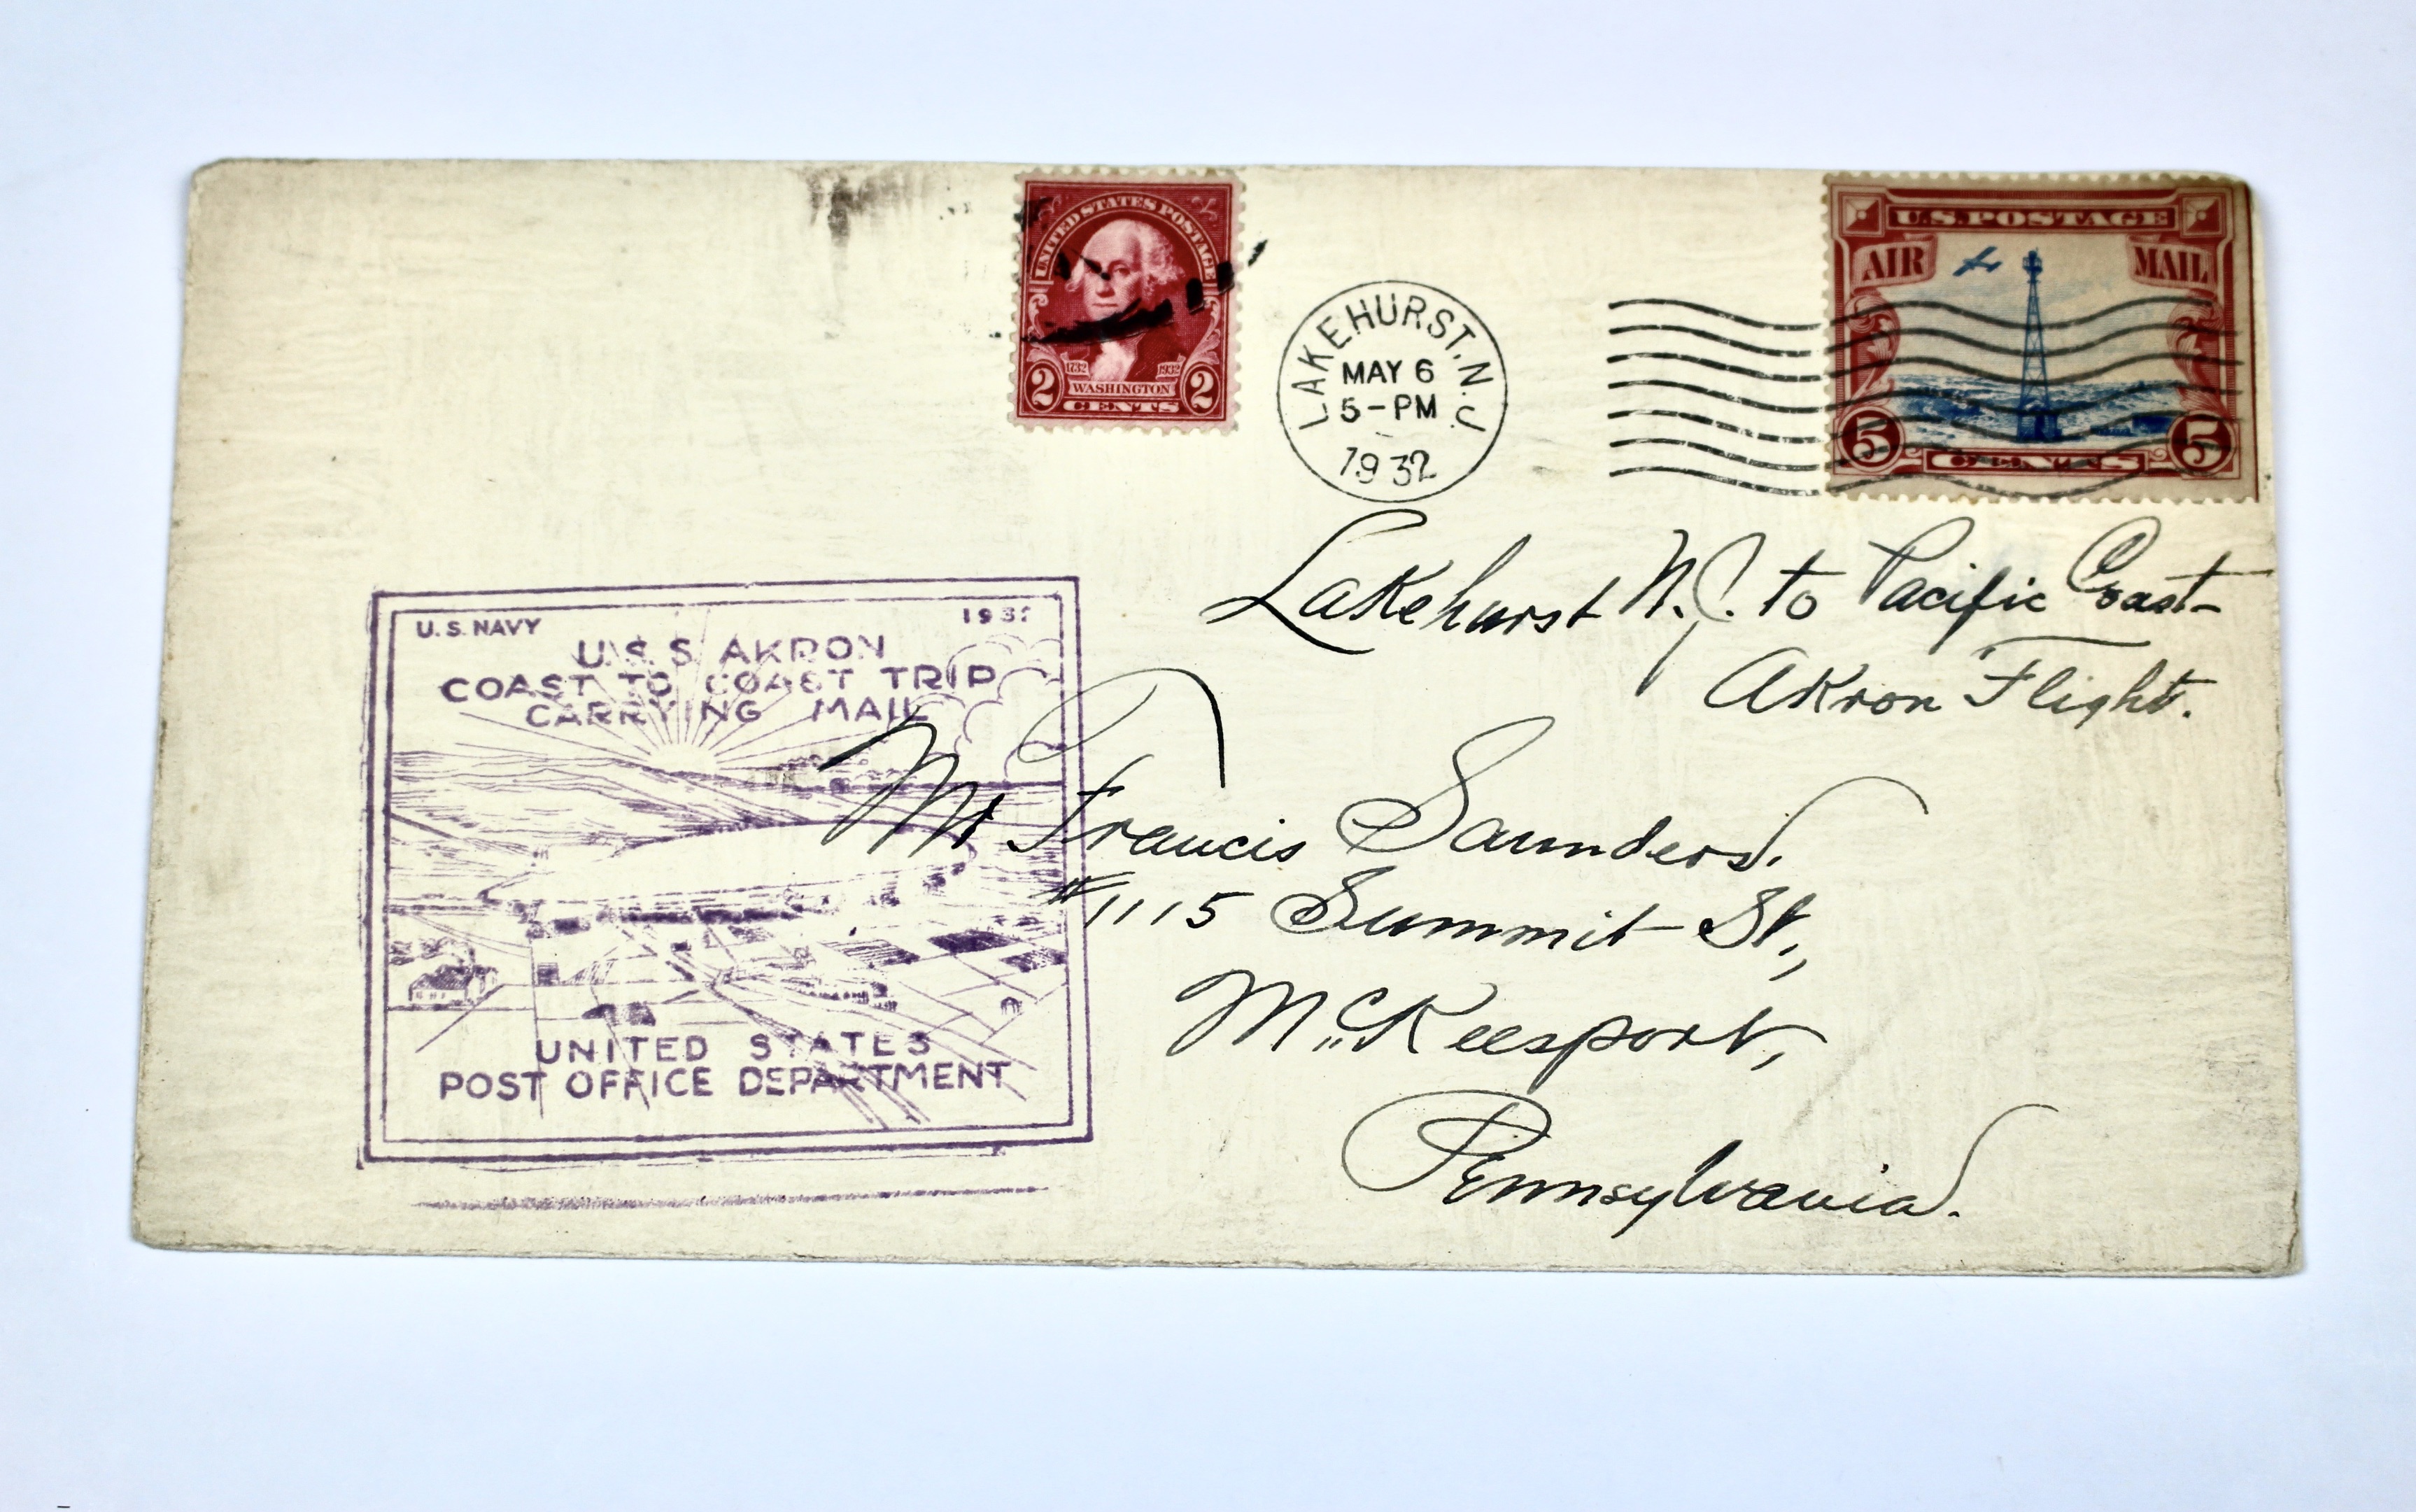 UNITED STATES POSTAGE
1732 1932
2 WASHINGTON 2
CENTS
LAKEHURST, N.J.
MAY 6
5-PM
1932
U.S. POSTAGE
AIR MAIL
5 5
CENTS
Lakehurst N.J. to Pacific Coast-
Akron Flight.
U.S. NAVY 1932
U.S.S. AKRON
COAST TO COAST TRIP
CARRYING MAIL
UNITED STATES
POST OFFICE DEPARTMENT
Mr Francis Saunders.
#1115 Summit St.,
McKeesport,
Pennsylvania.